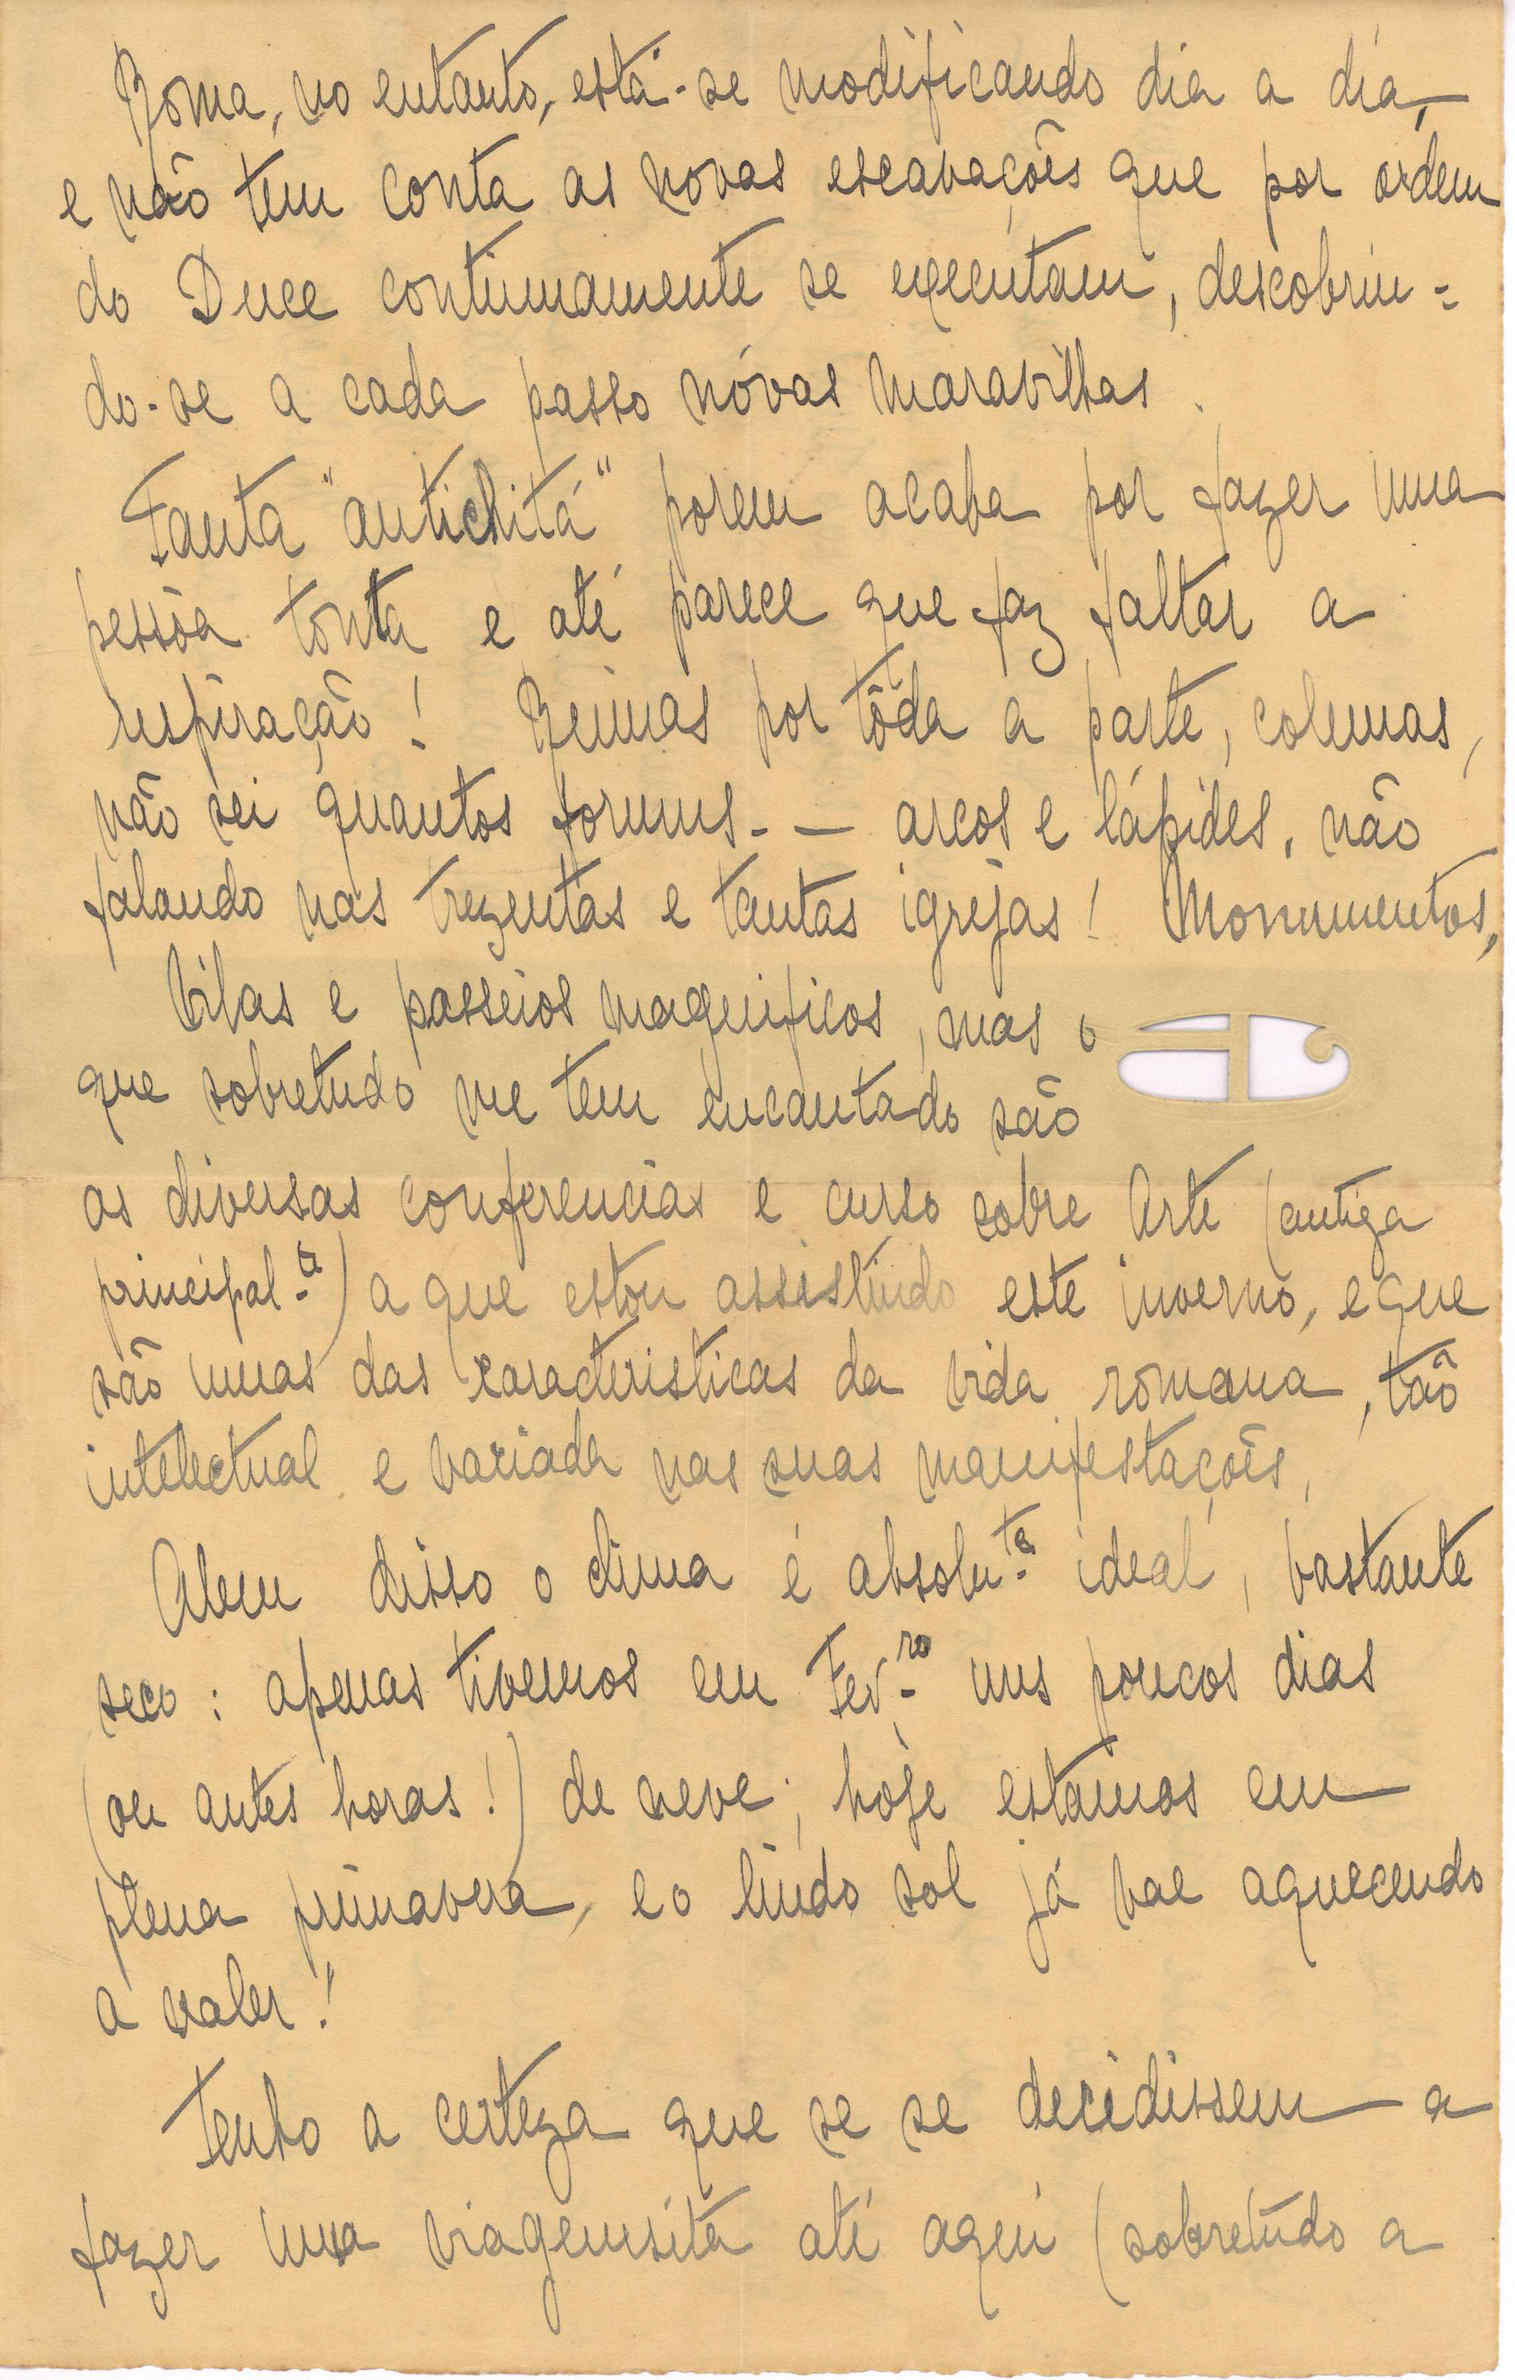 Roma, no entanto, está-se modificando dia a dia,
e não tem conta as novas escavações que por ordem
do Duce continuamente se executam, descobrin=
do-se a cada passo nóvas maravilhas.
Tanta "antichitá" porem acaba por fazer uma
pessôa tonta e até parece que faz faltar a
respiração! Ruinas por tôda a parte, colunas,
não sei quantos forums - — arcos e lápides, não
falando nas trezentas e tantas igrejas! Monumentos,
vilas e passeios magnificos, mas o
que sobretudo me tem encantado são
as diversas conferencias e curso sobre Arte (antiga
principal-te) a que estou assistindo este inverno, e que
são umas das caracteristicas da vida romana, tão
intelectual e variada nas suas manifestações.
Alem disso o clima é absolu-te ideal, bastante
seco: apenas tivemos em Fev-ro uns poucos dias
(ou antes horas!) de neve; hoje estamos em
plena primavera, e o lindo sol já vae aquecendo
a valer!
Tenho a certeza que se se decidissem a
fazer uma viagemsita até aqui (sobretudo a